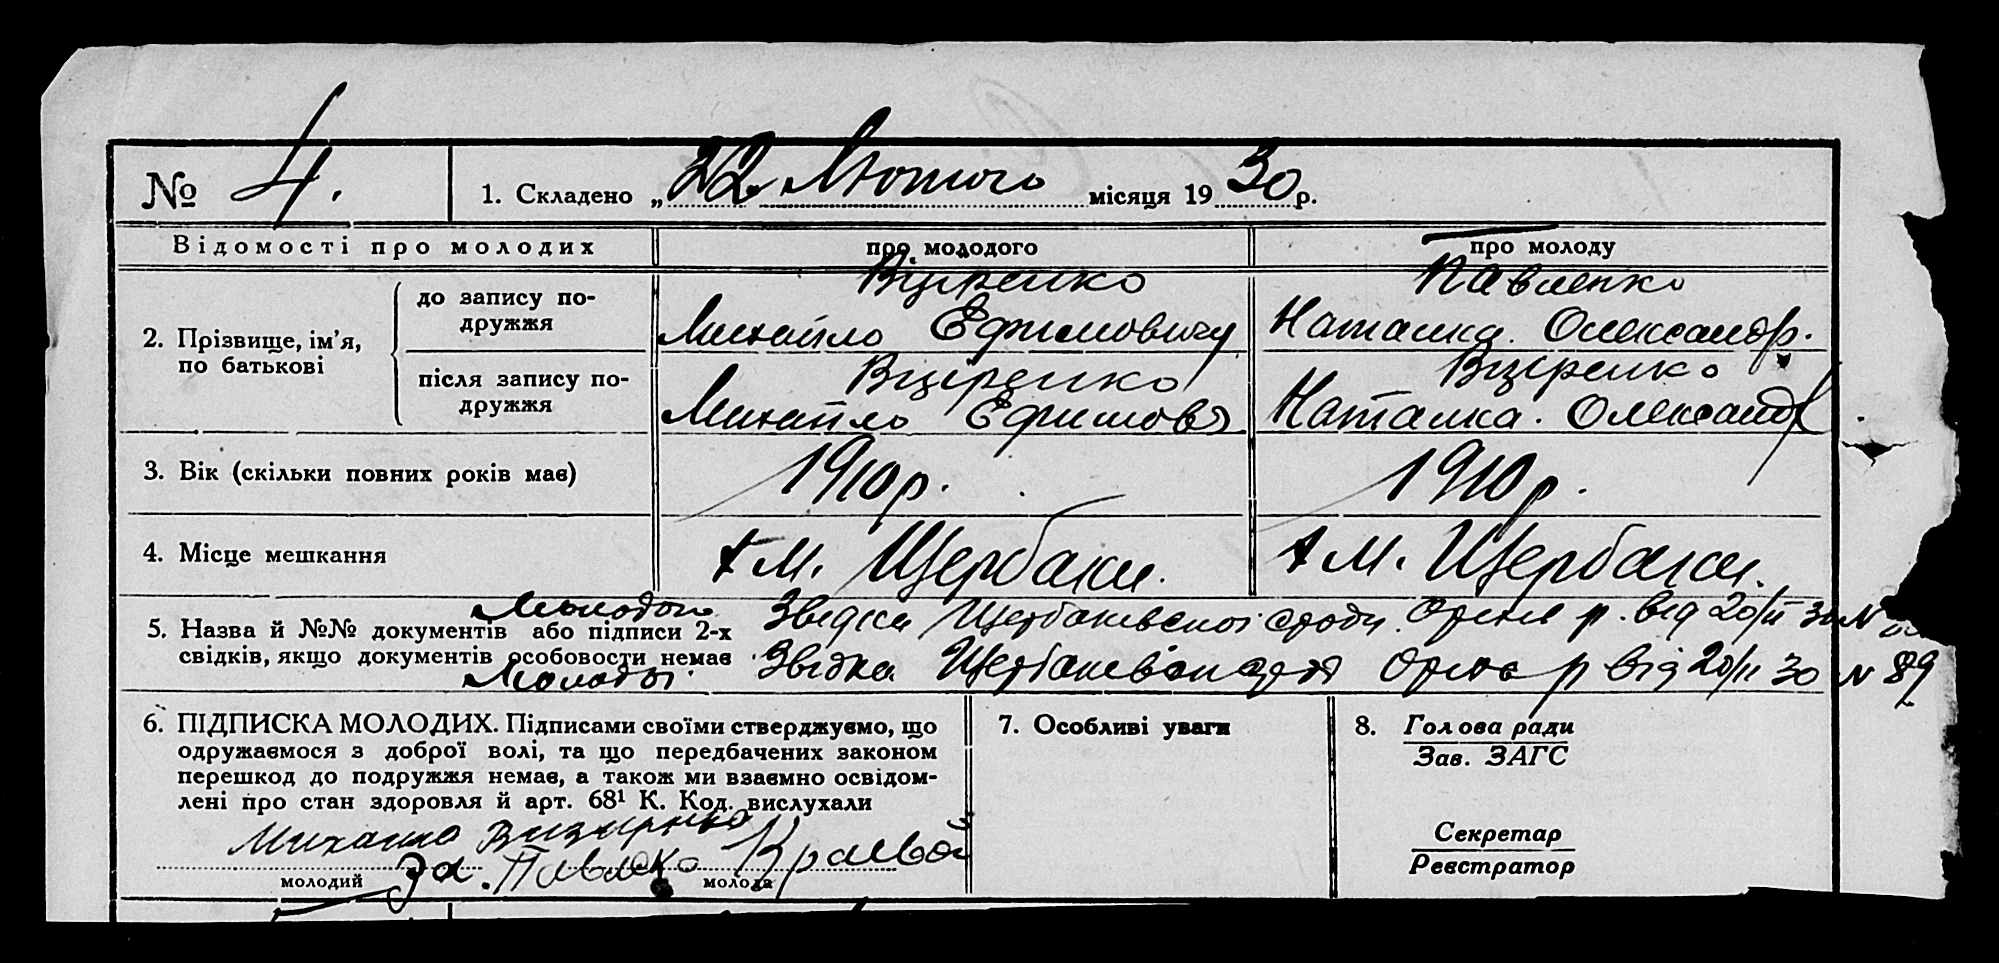 № 4. 1. Складено „22 Лютого місяця 1930р.
Відомості про молодих про молодого про молоду
2. Прізвище, ім’я, по батькові
до запису подружжя
Павленко
Михайло Ефимович Наталка Олександр.
після запису подружжя
Михайло Ефимов Наталка. Олександ
3. Вік (скільки повних років має) 1910р. 1910р.
4. Місце мешкання м. Щербаки. м. Щербаки.
Молодого
5. Назва й №№ документів або підписи 2-х Звідка Щербаківської р. від 20/II 30 №
свідків, якщо документів особовости немає Звідка р від 20/II 30 № 89
Молодої
6. ПІДПИСКА МОЛОДИХ. Підписами своїми стверджуємо, що
одружаємося з доброї волі, та що передбачених законом
перешкод до подружжя немає, а також ми взаємно освідом-
лені про стан здоровля й арт. 68¹ К. Код. вислухали
Михаило
за. Павленко
молодий молода
7. Особливі уваги
8. Голова ради
Зав. ЗАГС
Секретар
Реєстратор